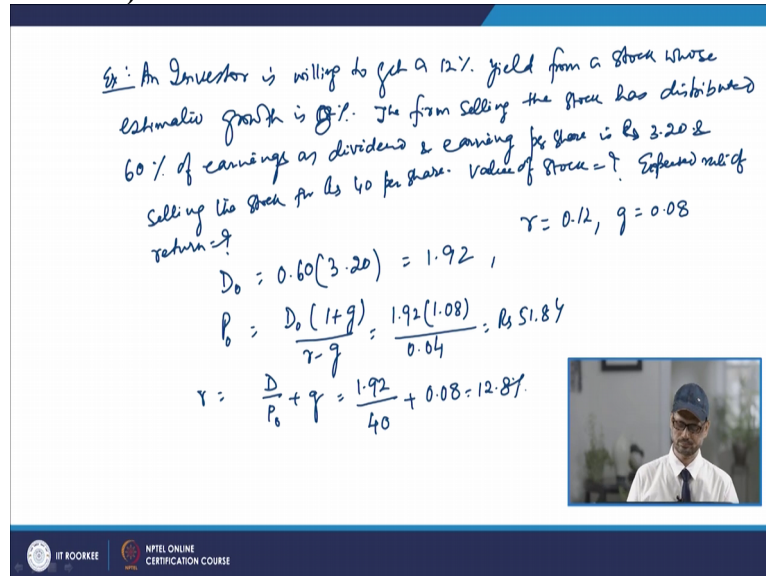 Ex: An Investor is willing to get a 12% yield from a stock whose
estimatic growth is 8%. The firm selling the stock has distributed
60% of earnings as dividend & earning per share is Rs 3.20 &
selling the stock for Rs 40 per share. Value of stock = ? Expected rate of
return = ?
r = 0.12, g = 0.08
D₀ = 0.60(3.20) = 1.92,
P₀ = D₀(1+g) / r-g = 1.92(1.08) / 0.04 = Rs 51.84
r = D / P₀ + g = 1.92 / 40 + 0.08 = 12.8%.
IIT ROORKEE
NPTEL ONLINE
CERTIFICATION COURSE